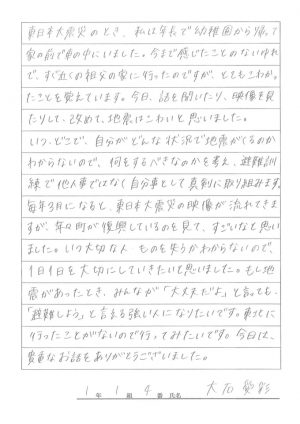 東日本大震災のとき、私は年長で幼稚園から帰って
家の前で車の中にいました。今まで感じたことのないゆれ
で、すぐ近くの祖父の家に行ったのですが、とてもこわかっ
たことを覚えています。今日、話を聞いたり、映像を見
たりして、改めて、地震はこわいと思いました。
いつ、どこで、自分がどんな状況で地震がくるのか
わからないので、何をするべきなのかを考え、避難訓
練で他人事ではなく自分事として真剣に取り組みます。
毎年3月になると、東日本大震災の映像が流れてきま
すが、年々町が復興しているのを見て、すごいなと思い
ました。いつ大切な人・ものを失うかわからないので、
1日1日を大切にしていきたいと思いました。もし地
震があったとき、みんなが「大丈夫だよ」と言っても、
「避難しよう」と言える強い人になりたいです。東北に
行ったことがないので行ってみたいです。今日は、
貴重なお話をありがとうございました。
1年 1組 4番 氏名 大石